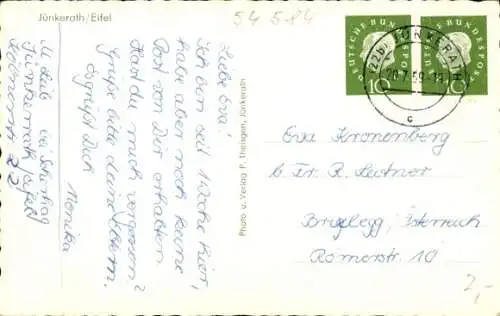 Jünkerath/Eifel
54 584
Liebe Eva!
Ich bin seit 1 Woche hier,
habe aber noch keine
Post von Dir erhalten.
Hast du mich vergessen?
Grüße bitte deine Eltern.
Es grüßt Dich
Monika
M. Leib bei
Jünkerath Eifel
22
Photo u. Verlag P. Theisgen, Jünkerath
DEUTSCHE BUNDESPOST
10
DEUTSCHE BUNDESPOST
10
(22b) JÜNKERATH
c
Eva Kronenberg
b. Fr. R. Leitner
Brixlegg, Österreich
Römerstr. 10
2,-